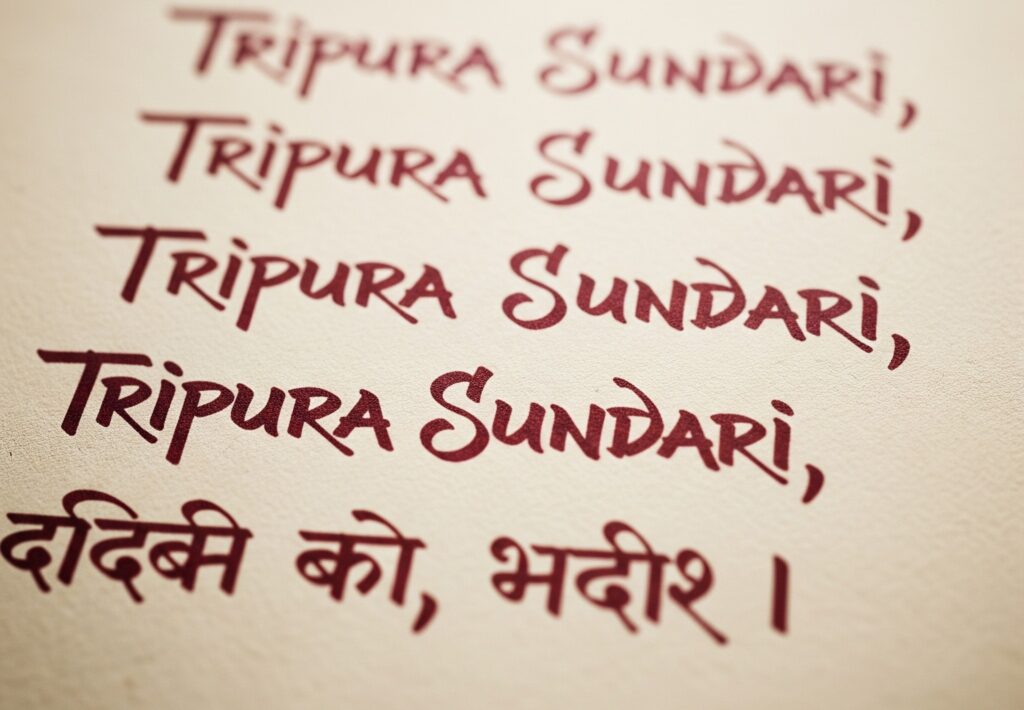 Tripura Sundari,
Tripura Sundari,
Tripura Sundari,
Tripura Sundari,
को, ।